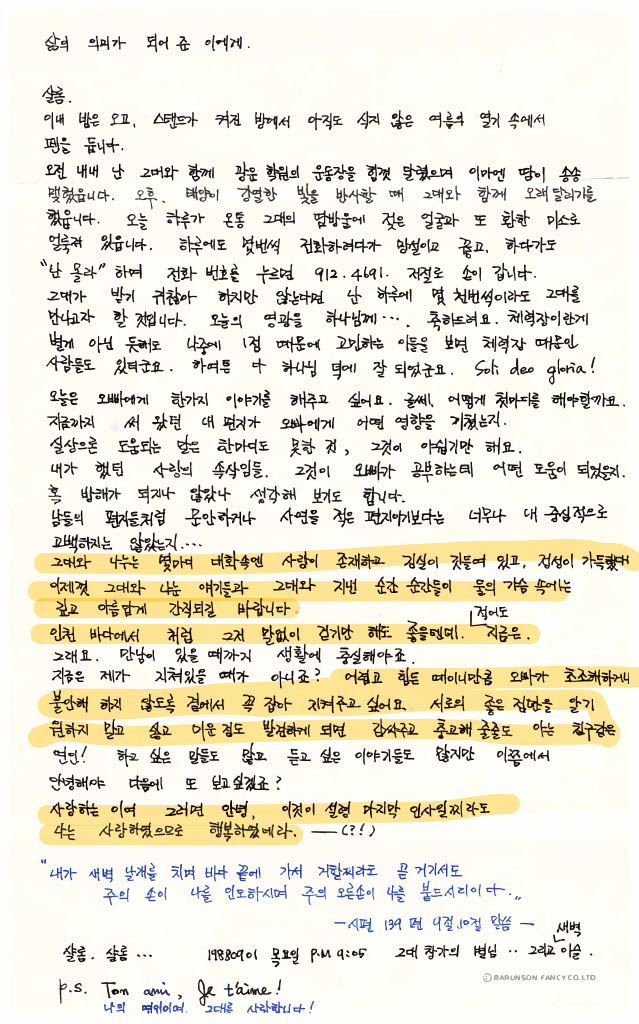 삶의 의미가 되어 준 이에게.
샬롬.
이내 밤은 오고, 스탠드가 켜진 방에서 아직도 식지 않은 여름의 열기 속에서
펜을 듭니다.
오전 내내 난 그대와 함께 광운 학원의 운동장을 힘껏 달렸으며 이마엔 땀이 송송
맺혔읍니다. 오후, 태양이 강렬한 빛을 반사할 때 그대와 함께 오래달리기를
했읍니다. 오늘 하루가 온통 그대의 땀방울에 젖은 얼굴과 또 환한 미소로
얼룩져 있읍니다. 하루에도 몇번씩 전화하려다가 망설이고 끊고, 하다가도
"난 몰라" 하며 전화 번호를 누르면 912.4691. 저절로 손이 갑니다.
그대가 받기 귀찮아 하지만 않는다면 난 하루에 몇 천번씩이라도 그대를
만나고자 할 것입니다. 오늘의 영광을 하나님께···. 축하드려요. 체력장이란게
별게 아닌 듯해도 나중에 1점 때문에 고민하는 이들을 보면 체력장 때문인
사람들도 있더군요. 하여튼 다 하나님 덕에 잘 되었군요. Soli deo gloria!
오늘은 오빠에게 한가지 이야기를 해주고 싶어요. 글쎄, 어떻게 첫마디를 해야할까요.
지금까지 써 왔던 내 편지가 오빠에게 어떤 영향을 끼쳤는지.
실상으론 도움되는 말은 한마디도 못한 것, 그것이 아쉽기만 해요.
내가 했던 사랑의 속삭임들. 그것이 오빠가 공부하는데 어떤 도움이 되었을지.
혹 방해가 되지나 않았나 생각해 보기도 합니다.
남들의 편지들처럼 문안하거나 사연을 적은 편지이기보다는 너무나 내 중심적으로
고백하지는 않았는지····
그대와 나누는 몇마디 대화속엔 사랑이 존재하고 진실이 깃들여 있고, 정성이 가득했대
이제껏 그대와 나눈 얘기들과 그대와 지낸 순간 순간들이 물의 가슴 속에는
깊고 아름답게 간직되길 바랍니다.
인천 바다에서 처럼 그저 말없이 걷기만 해도 좋을텐데. 적어도 지금은.
그래요. 만남이 있을 때까지 생활에 충실해야죠.
지금은 제가 지쳐있을 때가 아니죠? 어렵고 힘든 때이니만큼 오빠가 초조해하거나
불안해 하지 않도록 곁에서 꼭 잡아 지켜주고 싶어요. 서로의 좋은 점만을 알기
원하지 말고 싫고 미운 점도 발견하게 되면 감싸주고 충고해 줄줄도 아는 친구같은
연인! 하고 싶은 말들도 많고 듣고 싶은 이야기들도 많지만 이쯤에서
안녕해야 다음에 또 보고싶겠죠?
사랑하는 이여 그러면 안녕, 이것이 설령 마지막 인사일찌라도
나는 사랑하였으므로 행복하였네라. —— (?!)
"내가 새벽 날개를 치며 바다 끝에 가서 거할찌라도 곧 거기서도
주의 손이 나를 인도하시며 주의 오른손이 나를 붙드시리이다.„
— 시편 139편 9절,10절 말씀 —
샬롬. 샬롬 ··· 19880901 목요일 P.M 9:05 그대 창가의 별님 ·· 그리고 새벽 이슬.
p.s. Ton ami, Je t'aime!
나의 연인이여, 그대를 사랑합니다!
BARUNSON FANCY CO.LTD